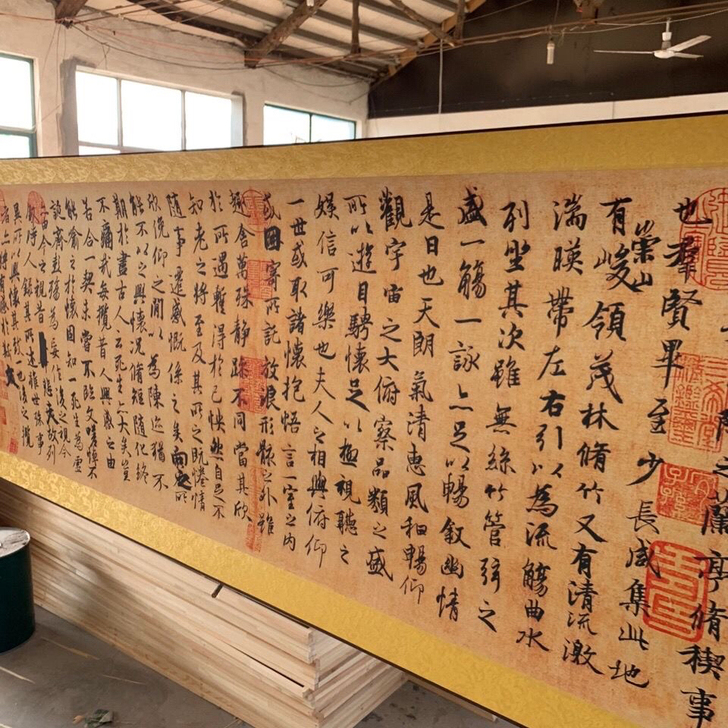 之蘭亭脩稧事
也羣賢畢至少長咸集此地
有崇山峻領茂林脩竹又有清流激
湍暎帶左右引以為流觴曲水
列坐其次雖無絲竹管弦之
盛一觴一詠亦足以暢敘幽情
是日也天朗氣清惠風和暢仰
觀宇宙之大俯察品類之盛
所以遊目騁懷足以極視聽之
娛信可樂也夫人之相與俯仰
一世或取諸懷抱悟言一室之內
或因寄所託放浪形骸之外雖
趣舍萬殊靜躁不同當其欣
於所遇蹔得於己怏然自足不
知老之將至及其所之既惓情
隨事遷感慨係之矣向之所
欣俛仰之間以為陳迹猶不
能不以之興懷況脩短隨化終
期於盡古人云死生亦大矣豈
不痛哉每攬昔人興感之由
若合一契未嘗不臨文嗟悼不
能喻之於懷固知一死生為虛
誕齊彭殤為妄作後之視今
亦由今之視昔悲夫故列
敘時人錄其所述雖世殊事
異所以興懷其致一也後之攬